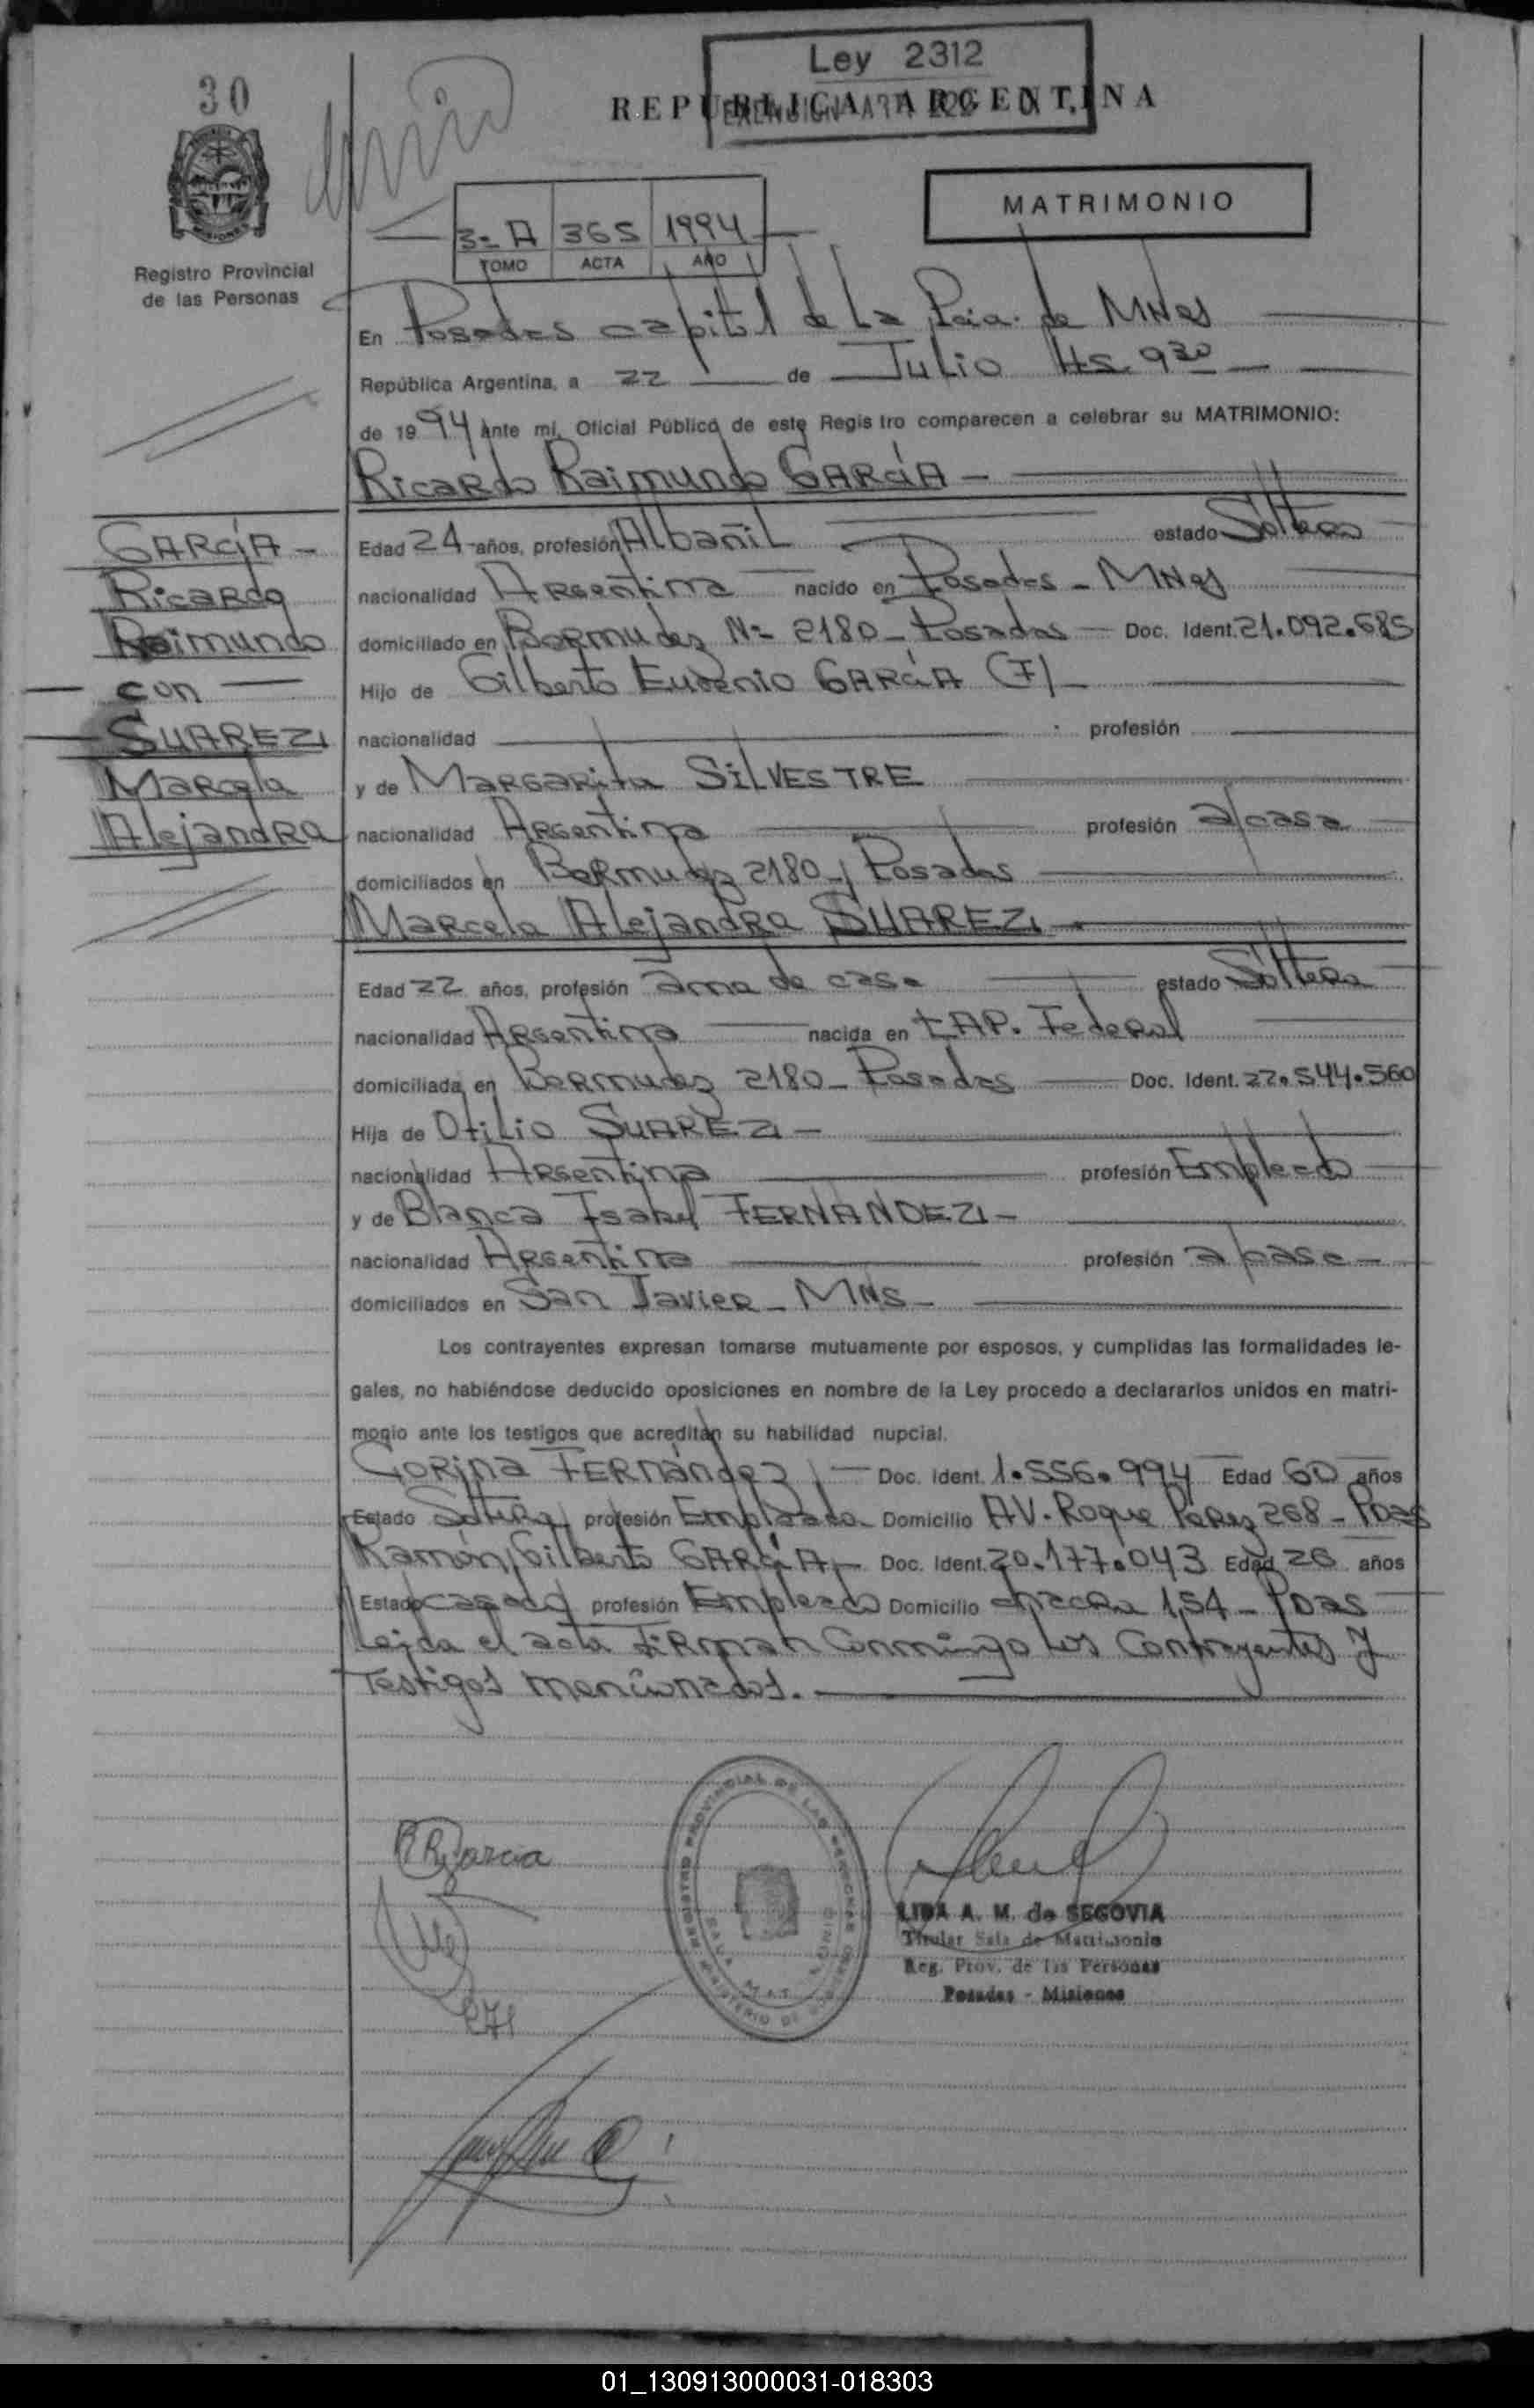 30
Ley 2312
REPUBLICA ARGENTINA
MATRIMONIO
3-A 365 1994
TOMO ACTA AÑO
MISIONES
Registro Provincial
de las Personas
En Posadas capital de La Pcia. de MNes
República Argentina, a 22 de Julio Hs. 9 30
de 1994 ante mi, Oficial Público de este Regis tro comparecen a celebrar su MATRIMONIO:
Ricardo Raimundo GARCIA -
GARCIA -
Ricardo
Raimundo
con
SUAREZ
Marcela
Alejandra
Edad 24 años, profesión Albañil estado Soltero
nacionalidad Argentina nacido en Posadas - MNes
domiciliado en Bermudez Nº 2180 - Posadas - Doc. Ident. 21.092.685
Hijo de Gilberto Eugenio GARCIA (F)
nacionalidad profesión
y de Margarita SILVESTRE
nacionalidad Argentina profesión a/casa
domiciliados en Bermudez 2180 - Posadas
Marcela Alejandra SUAREZ -
Edad 22 años, profesión ama de casa estado Soltera
nacionalidad Argentina nacida en CAP. Federal
domiciliada en Bermudez 2180 - Posadas Doc. Ident. 22.544.560
Hija de Otilio SUAREZ -
nacionalidad Argentina profesión Empleado
y de Blanca Isabel FERNANDEZ -
nacionalidad Argentina profesión a/casa -
domiciliados en San Javier - MNS -
Los contrayentes expresan tomarse mutuamente por esposos, y cumplidas las formalidades le-
gales, no habiéndose deducido oposiciones en nombre de la Ley procedo a declararlos unidos en matri-
monio ante los testigos que acreditan su habilidad nupcial.
Corina FERNández - Doc. Ident. 1.556.994 Edad 60 años
Estado Soltera profesión Empleada Domicilio AV. Roque Perez 268 - Pdas
Ramón Gilberto GARCIA - Doc. Ident. 20.177.043 Edad 26 años
Estado casado profesión Empleado Domicilio chacra 154 - Pdas
Leida el acta firman Conmingo los Contrayentes y
Testigos mencionados.
RRGarcia
LIDA A. M. de SEGOVIA
Titular Sala de Matrimonio
Reg. Prov. de las Personas
Posadas - Misiones
01_130913000031-018303